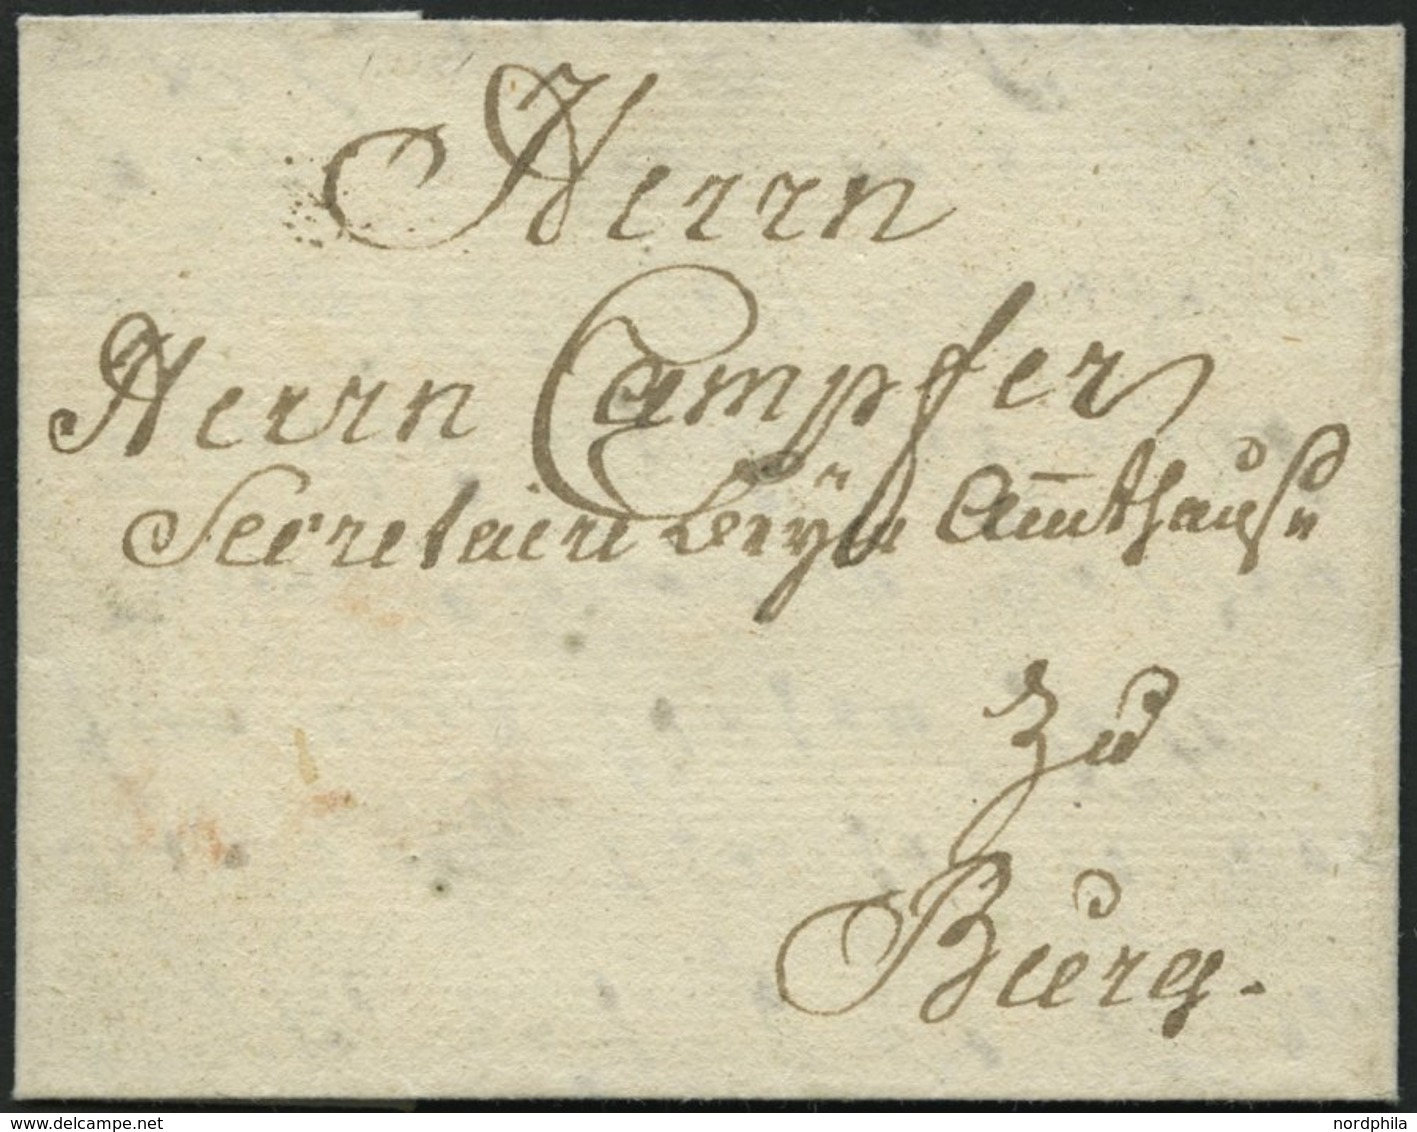 Herrn
Herrn Campfer
Secretaire beym Ambthauß
zu
Burg.
nordphila